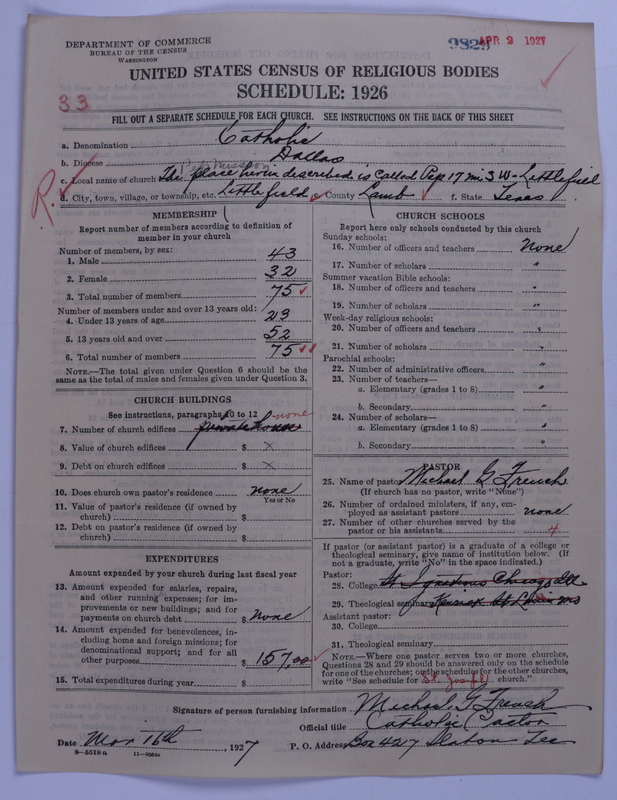 DEPARTMENT OF COMMERCE
BUREAU OF THE CENSUS
WASHINGTON
9829
APR 2 1927
UNITED STATES CENSUS OF RELIGIOUS BODIES
SCHEDULE: 1926
33
FILL OUT A SEPARATE SCHEDULE FOR EACH CHURCH. SEE INSTRUCTIONS ON THE BACK OF THIS SHEET
a. Denomination Catholic
b. Diocese Dallas
Pep Mission
c. Local name of church The place herein described is called Pep 17 mi S W - Littlefield
R.
d. City, town, village, or township, etc. Littlefield e. County Lamb f. State Texas
MEMBERSHIP
Report number of members according to definition of
member in your church
Number of members, by sex:
1. Male 43
2. Female 32
3. Total number of members 75
Number of members under and over 13 years old:
4. Under 13 years of age 23
5. 13 years old and over 52
6. Total number of members 75
NOTE.—The total given under Question 6 should be
same as the total of males and females given under Question 3.
CHURCH BUILDINGS
See instructions, paragraphs 10 to 12 none
7. Number of church edifices private house
8. Value of church edifices $ X
9. Debt on church edifices $ X
10. Does church own pastor's residence none
Yes or No
11. Value of pastor's residence (if owned by
church) $
12. Debt on pastor's residence (if owned by
church) $
EXPENDITURES
Amount expended by your church during last fiscal year
13. Amount expended for salaries, repairs,
and other running expenses; for im-
provements or new buildings; and for
payments on church debt $ None
14. Amount expended for benevolences, in-
cluding home and foreign missions; for
denominational support; and for all
other purposes $ 157.00
15. Total expenditures during year $
CHURCH SCHOOLS
Report here only schools conducted by this church
Sunday schools:
16. Number of officers and teachers None
17. Number of scholars "
Summer vacation Bible schools:
18. Number of officers and teachers "
19. Number of scholars "
Week-day religious schools:
20. Number of officers and teachers "
21. Number of scholars "
Parochial schools:
22. Number of administrative officers "
23. Number of teachers—
a. Elementary (grades 1 to 8) "
b. Secondary "
24. Number of scholars—
a. Elementary (grades 1 to 8) "
b. Secondary "
PASTOR
25. Name of pastor Michael G French
(If church has no pastor, write "None")
26. Number of ordained ministers, if any, em-
ployed as assistant pastors none
27. Number of other churches served by the
pastor or his assistants 4
If pastor (or assistant pastor) is a graduate of a college or
theological seminary, give name of institution below. (If
not a graduate, write "No" in the space indicated.)
Pastor:
28. College St Ignatius Chicago Ill.
29. Theological seminary Kenrick St Louis Mo
Assistant pastor:
30. College
31. Theological seminary
NOTE.—Where one pastor serves two or more churches,
Questions 28 and 29 should be answered only on the schedule
for one of the churches; on the schedules for the other churches,
write "See schedule for St. Joseph church."
Signature of person furnishing information Michael G. French
Official title Catholic Pastor
Date Mar 16th, 1927 P. O. Address Box 427 Slaton Tex
8—5518 a